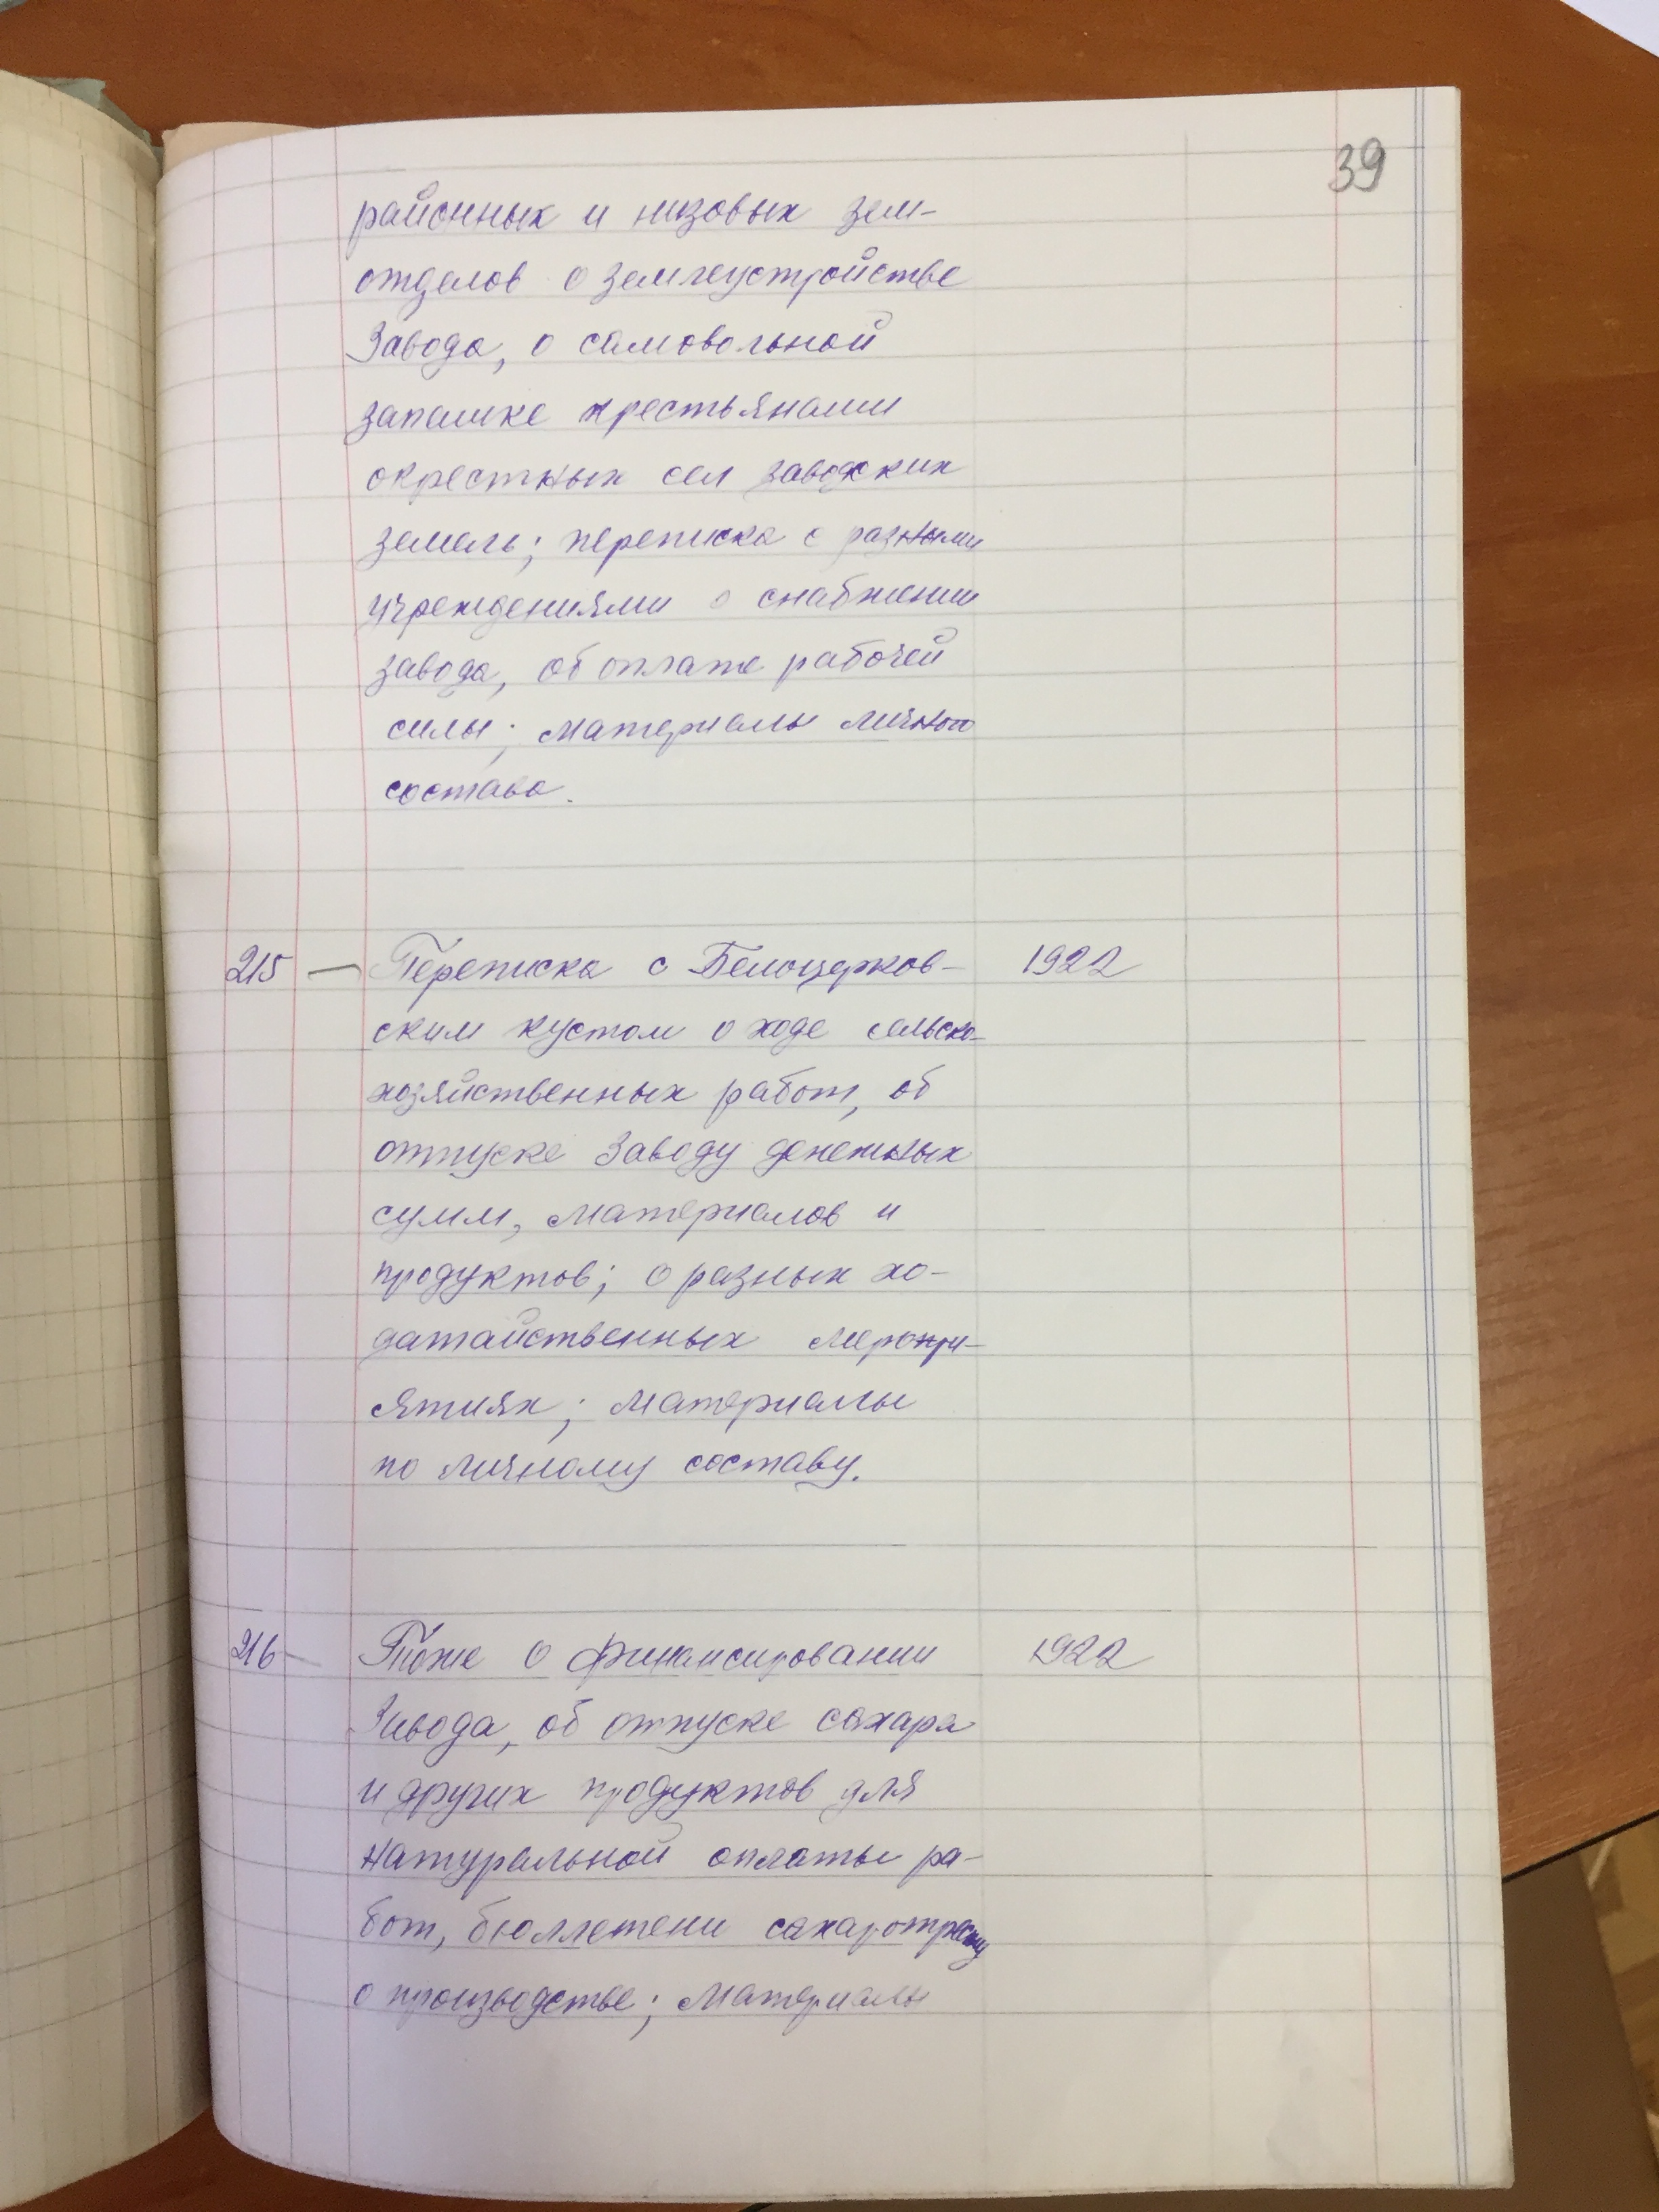 39
районных и низовых зем-
отделов о землеустройстве
Завода, о самовольной
запашке крестьянами
окрестных сел заводских
земель; переписка с разными
учреждениями о снабжении
завода, об оплате рабочей
силы; материалы личного
состава.
215 — Переписка с Белоцерков- 1922
ским кустом о ходе сельско-
хозяйственных работ, об
отпуске Заводу денежных
сумм, материалов и
продуктов; о разных хо-
датайственных меропри-
ятиях; материалы
по личному составу.
216 — Тоже о финансировании 1922
Завода, об отпуске сахара
и других продуктов для
натуральной оплаты ра-
бот, бюллетени сахаротреста
о производстве; материалы